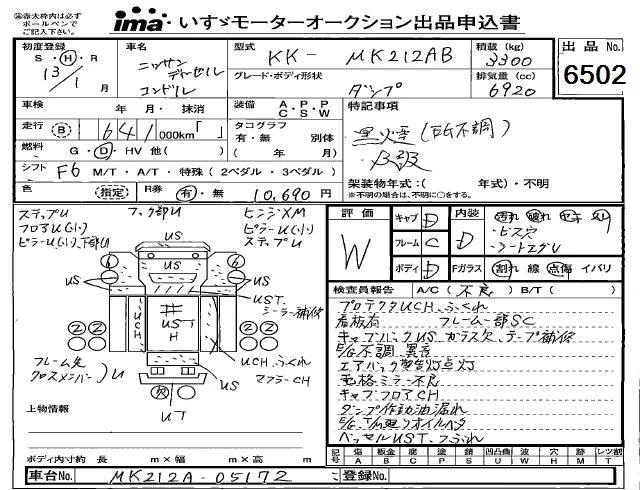 ※赤太枠内は必ず
ボールペンで
ご記入下さい。
ima いすゞモーターオークション出品申込書
初度登録
S・H・R
13/1 月
車名
ニッサン
ディーゼル
コンドル
型式
KK- MK212AB
グレード・ボディ形状
ダンプ
積載 (kg)
3300
排気量 (cc)
6920
出品 No.
6502
車検 年 月・抹消
装備 A・P・P C S W
特記事項
走行 B 1 641 000km「 」
タコグラフ
有・無 別体
( 年 月)
黒煙(E/G不調)
燃料 G・D・HV 他( )
シフト F6 M/T・A/T・特殊(2ペダル・3ペダル)
架装物年式:( 年式)・不明
※不明の場合は、不明に○をする。
色 (指定) R券 有・無 10,690 円
ステップU
フロアU(小)
ピラーU(小)、下部U
フック部U
ヒンジXM
ピラーU(小)
ステップU
US
US
US
6
6
UST、
シーラー補修
UCH
US
H
2 2
2 2
UCH、ふくれ
マフラーCH
US
フレーム先
クロスメンバー
U
UT
上物情報
ボディ内寸約 長 m×幅 m×高 m
評価
W
キャブ D
フレーム C
ボディ D
内装 D
Fガラス
汚れ 破れ
・ビス穴
・シートエグレ
割れ 線 点傷 イバリ
検査員報告 A/C(不良) B/T( )
プロテクタUCH、ふくれ
看板有 フレーム一部SC
キャブバックUS、ガラス欠、テープ補修
E/G不調、異音
エアバック警告灯点灯
電格ミラー不良
キャブフロアCH
ダンプ作動油漏れ
E/G、T/M廻りオイルヘタ
ベッセルUST、つぶれ
記号 傷 A 板金 B 腐 C 塗 P 錆 S 凹凸曲 U 波 W 穴 H 跡 M レツ割 T
車台No. MK212A-05172 登録No.